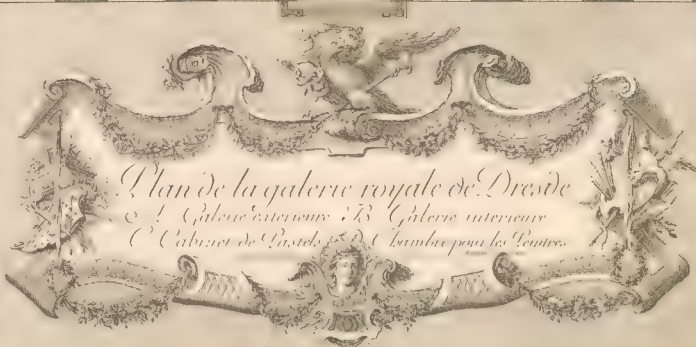 Plan de la galerie royale de Dresde
A Galerie exterieure B Galerie interieure
C Cabinet de Pastels D Chambre pour les Peintres